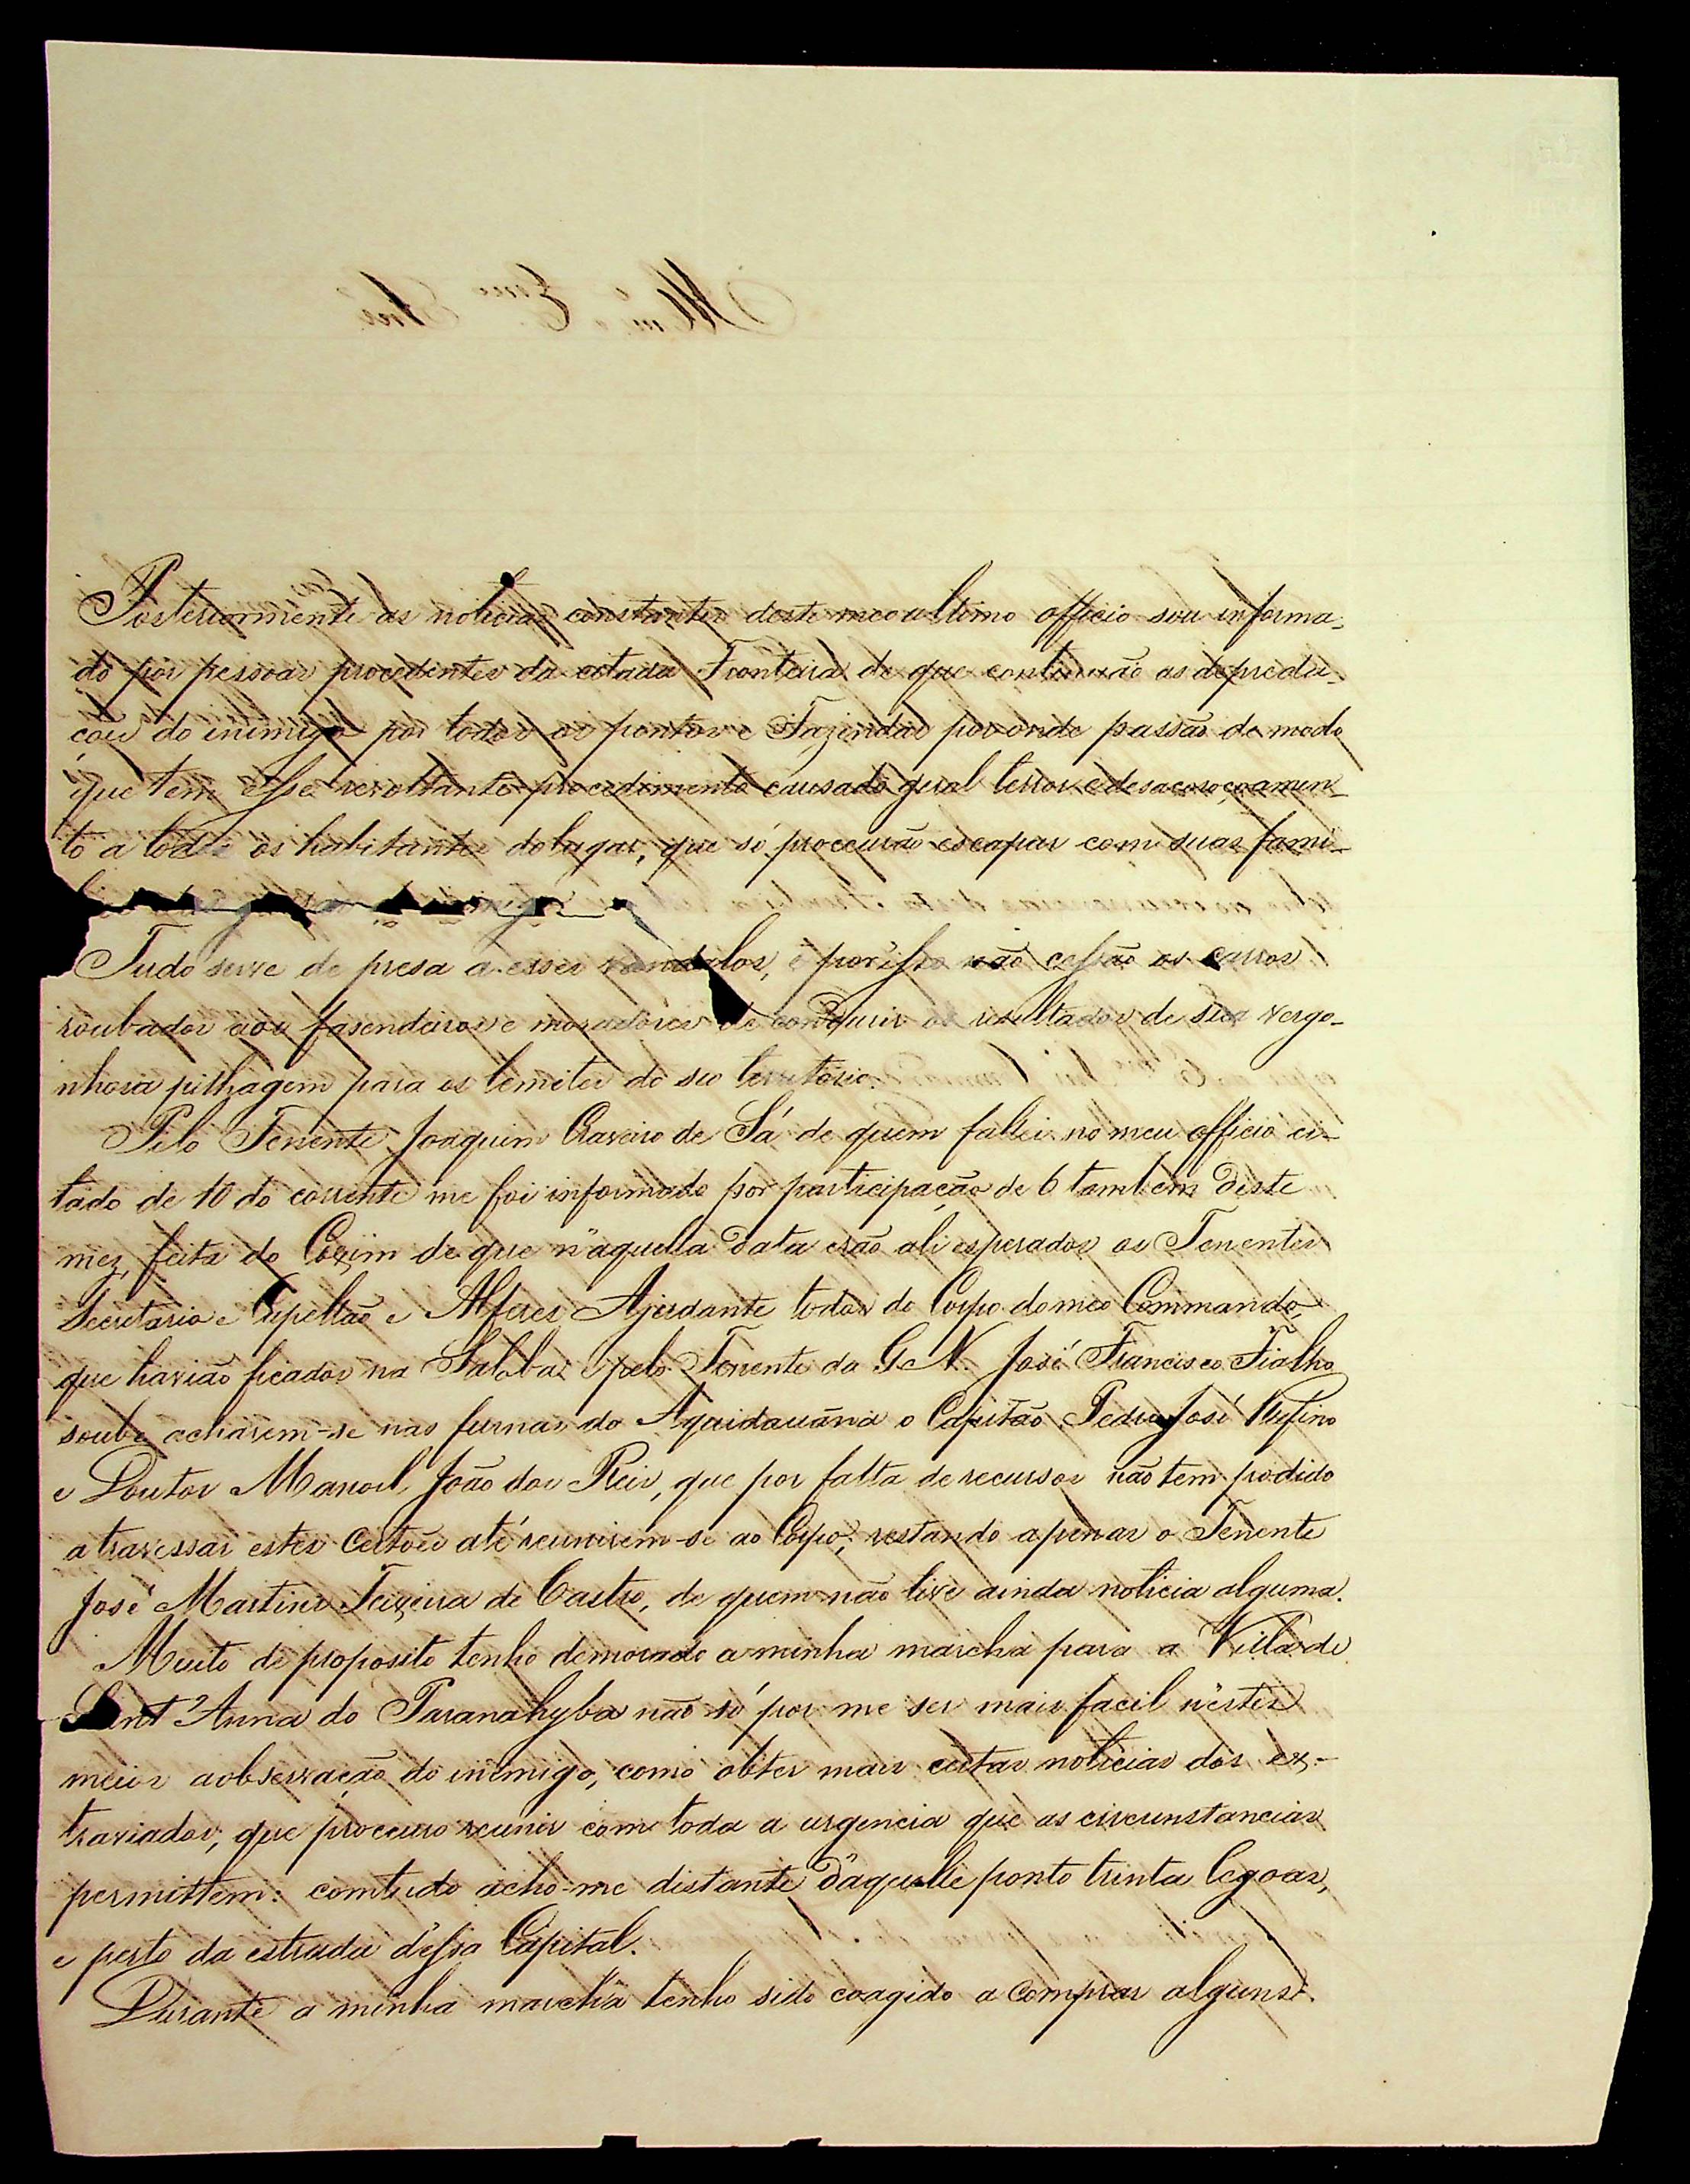 Posteriormente as noticias constantes deste meo ultimo officio sou informa-
do por pessoas procedentes da citada Fronteira de que continuão as depreda-
ções do inimigo por todos os pontos e Fazendas por onde passão de modo
que tem esse revoltante procedimento causado geral terror e desacoroçoamen-
to a todos os habitantes do lugar, que só procurão escapar com suas fami-
Tudo serve de presa a esses vandalos, e por isso não cessão os carros
roubados aos fasendeiros e moradores de conduzir os resultados de sua vergo-
nhosa pilhagem para os limites do seo territorio.
Pelo Tenente Joaquim Craveiro de Sá de quem fallei no meu officio ci-
tado de 10 do corrente me foi informado por participação de 6 tambem deste
mez, feita do Coxim de que n'aquella data erão ali esperados os Tenentes
Secretario e Capellão e Alferes Ajudante todos do Corpo do meo Commando,
que havião ficados na e pelo Tenente da G. N. José Francisco Fialho
soube acharem-se nas furnas do Aquidauána o Capitão Pedro José Rufino
e Doutor Manoel João dos Reis, que por falta de recursos não tem podido
atravessar estes Certões até reunirem-se ao Corpo; restando apenas o Tenente
José Martins Teixeira de Castro, de quem não tive ainda noticia alguma.
Muito de proposito tenho demorado a minha marcha para a Villa de
Sant'Anna do Paranahyba não só por me ser mais facil n'estes
meios a observação do inimigo, como obter mais certas noticias dos ex-
traviados, que procuro reunir com toda a urgencia que as circunstancias
permittem: comtudo acho-me distante d'aquelle ponto trinta legoas,
e perto da estrada d'essa Capital.
Durante a minha marcha tenho sido coagido a comprar alguns